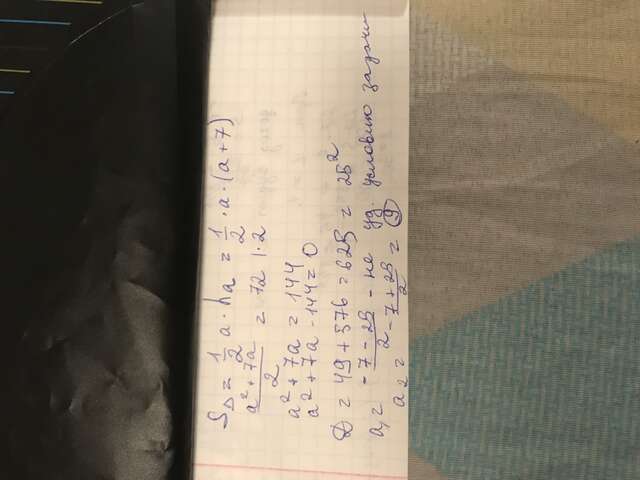 S△ = 1/2 a · ha = 1/2 · a · (a + 7)
a² + 7a / 2 = 72 | · 2
a² + 7a = 144
a² + 7a - 144 = 0
D = 49 + 576 = 625 = 25²
a₁ = -7 - 25 / 2 - не уд. условию задачи
a₂ = -7 + 25 / 2 = 9